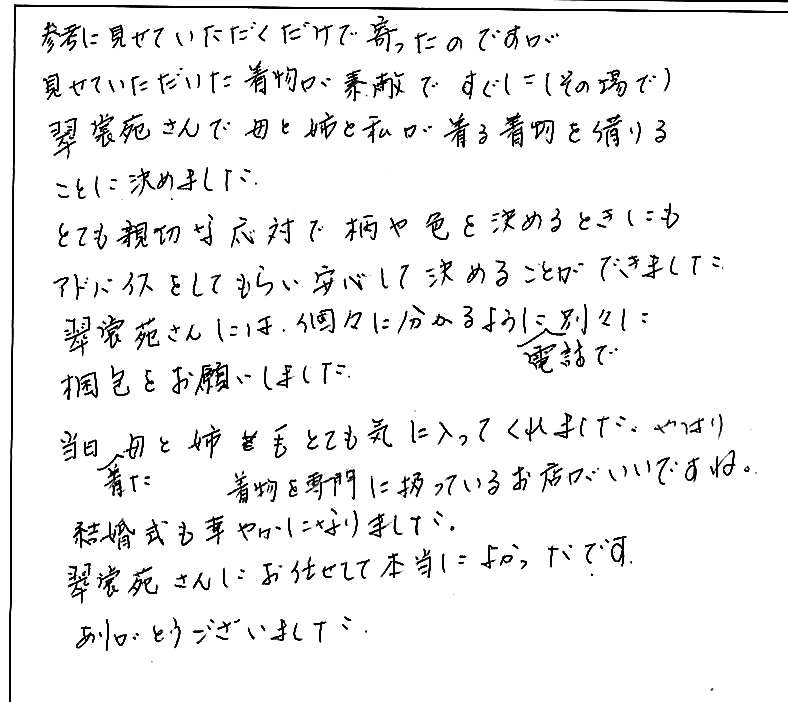 参考に見せていただくだけで寄ったのですが
見せていただいた着物が素敵ですぐに(その場で)
翠裳苑さんで母と姉と私が着る着物を借りる
ことに決めました.
とても親切な応対で柄や色を決めるときにも
アドバイスをしてもらい安心して決めることができました
翠裳苑さんには.個々に分かるように別々に
電話で
梱包をお願いしました.
当日母と姉もとても気に入ってくれました. やはり
着た 着物を専門に扱っているお店がいいですね。
結婚式も華やかになりました.
翠裳苑さんにお任せして本当によかったです.
ありがとうございました.